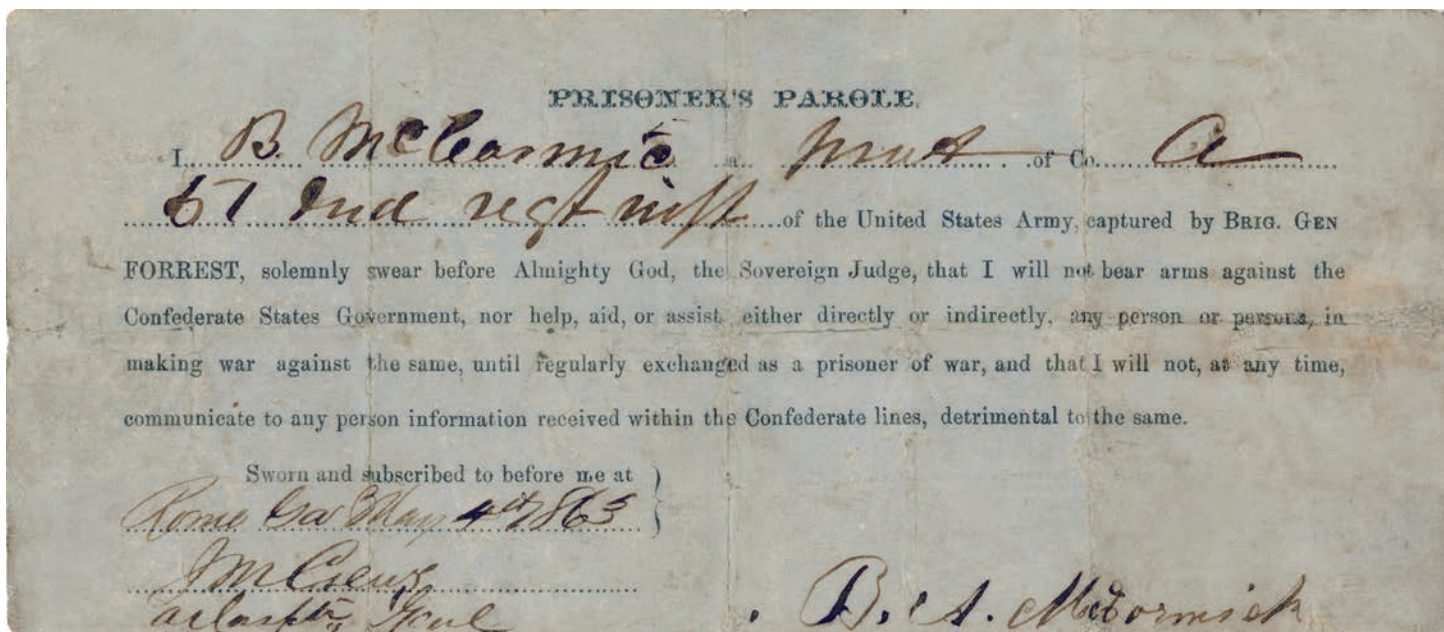 PRISONER'S PAROLE.
I, B. McCormic a privt of Co. A
51 Ind regt inft of the United States Army, captured by BRIG. GEN
FORREST, solemnly swear before Almighty God, the Sovereign Judge, that I will not bear arms against the
Confederate States Government, nor help, aid, or assist, either directly or indirectly, any person or persons, in
making war against the same, until regularly exchanged as a prisoner of war, and that I will not, at any time,
communicate to any person information received within the Confederate lines, detrimental to the same.
Sworn and subscribed to before me at
Rome Ga May 4th 1863
B. A. McCormick